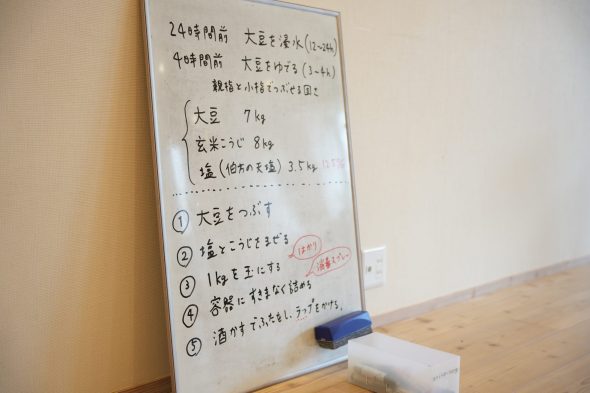 24時間前 大豆を浸水(12〜24h)
4時間前 大豆をゆでる(3〜4h)
親指と小指でつぶせる固さ
大豆 7kg
玄米こうじ 8kg
塩(伯方の天塩) 3.5kg 12.5%
① 大豆をつぶす
② 塩とこうじをまぜる
はかり
③ 1kgを玉にする
消毒スプレー
④ 容器にすきまなく詰める
⑤ 酒かすでふたをし、ラップをかける。